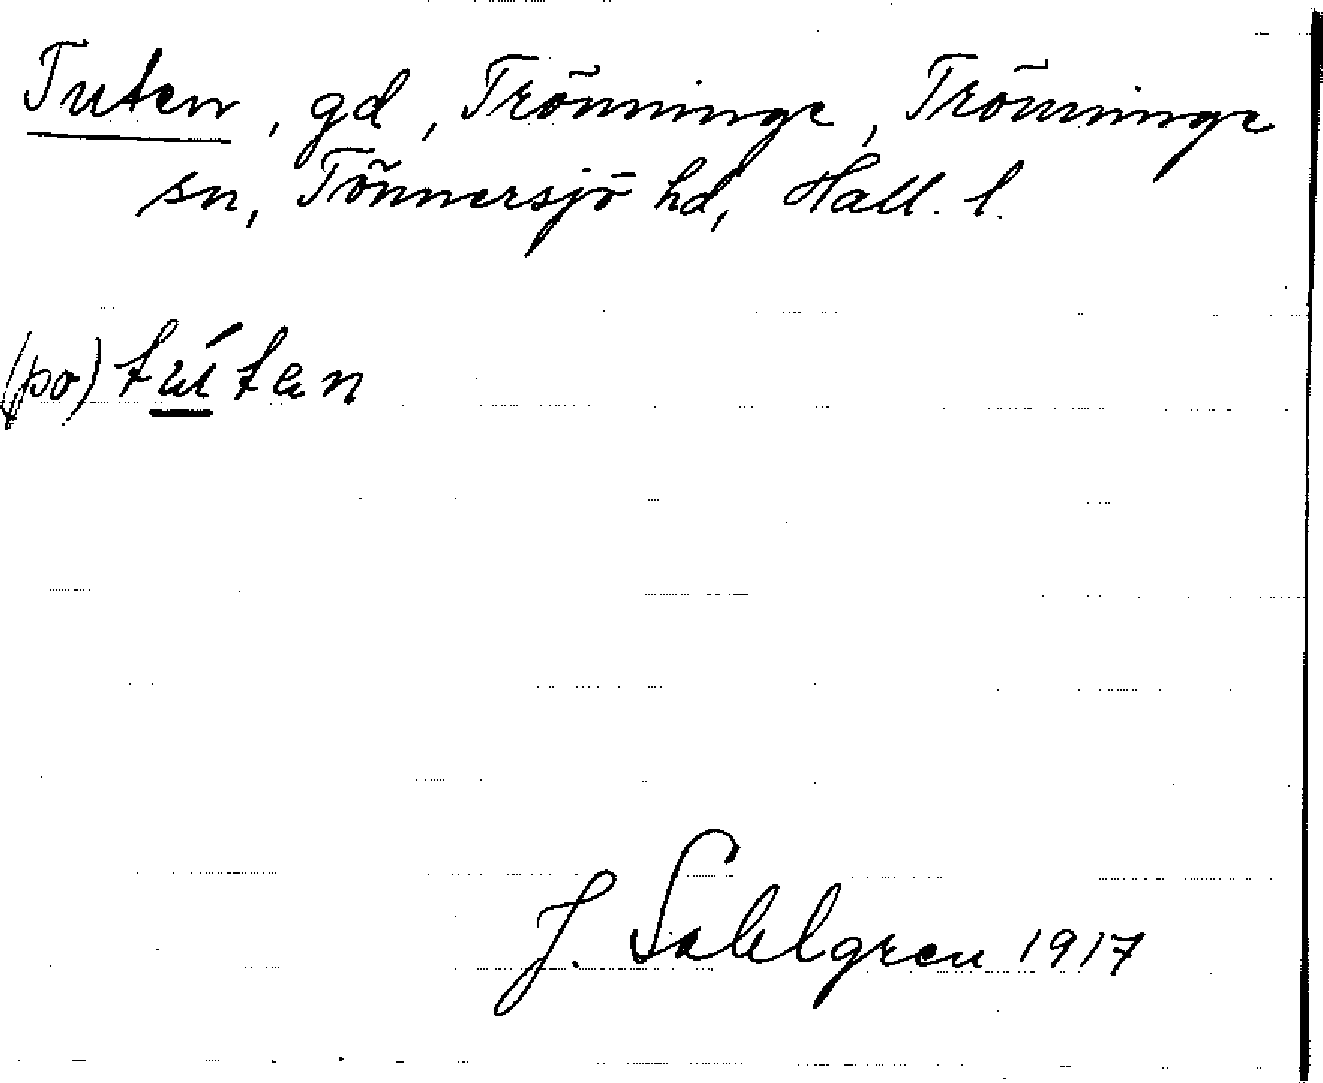 Tuten, gd, Trönninge, Trönninge
sn, Tönnersjö hd, Hall. l.
(po) túten
J. Sahlgren 1917